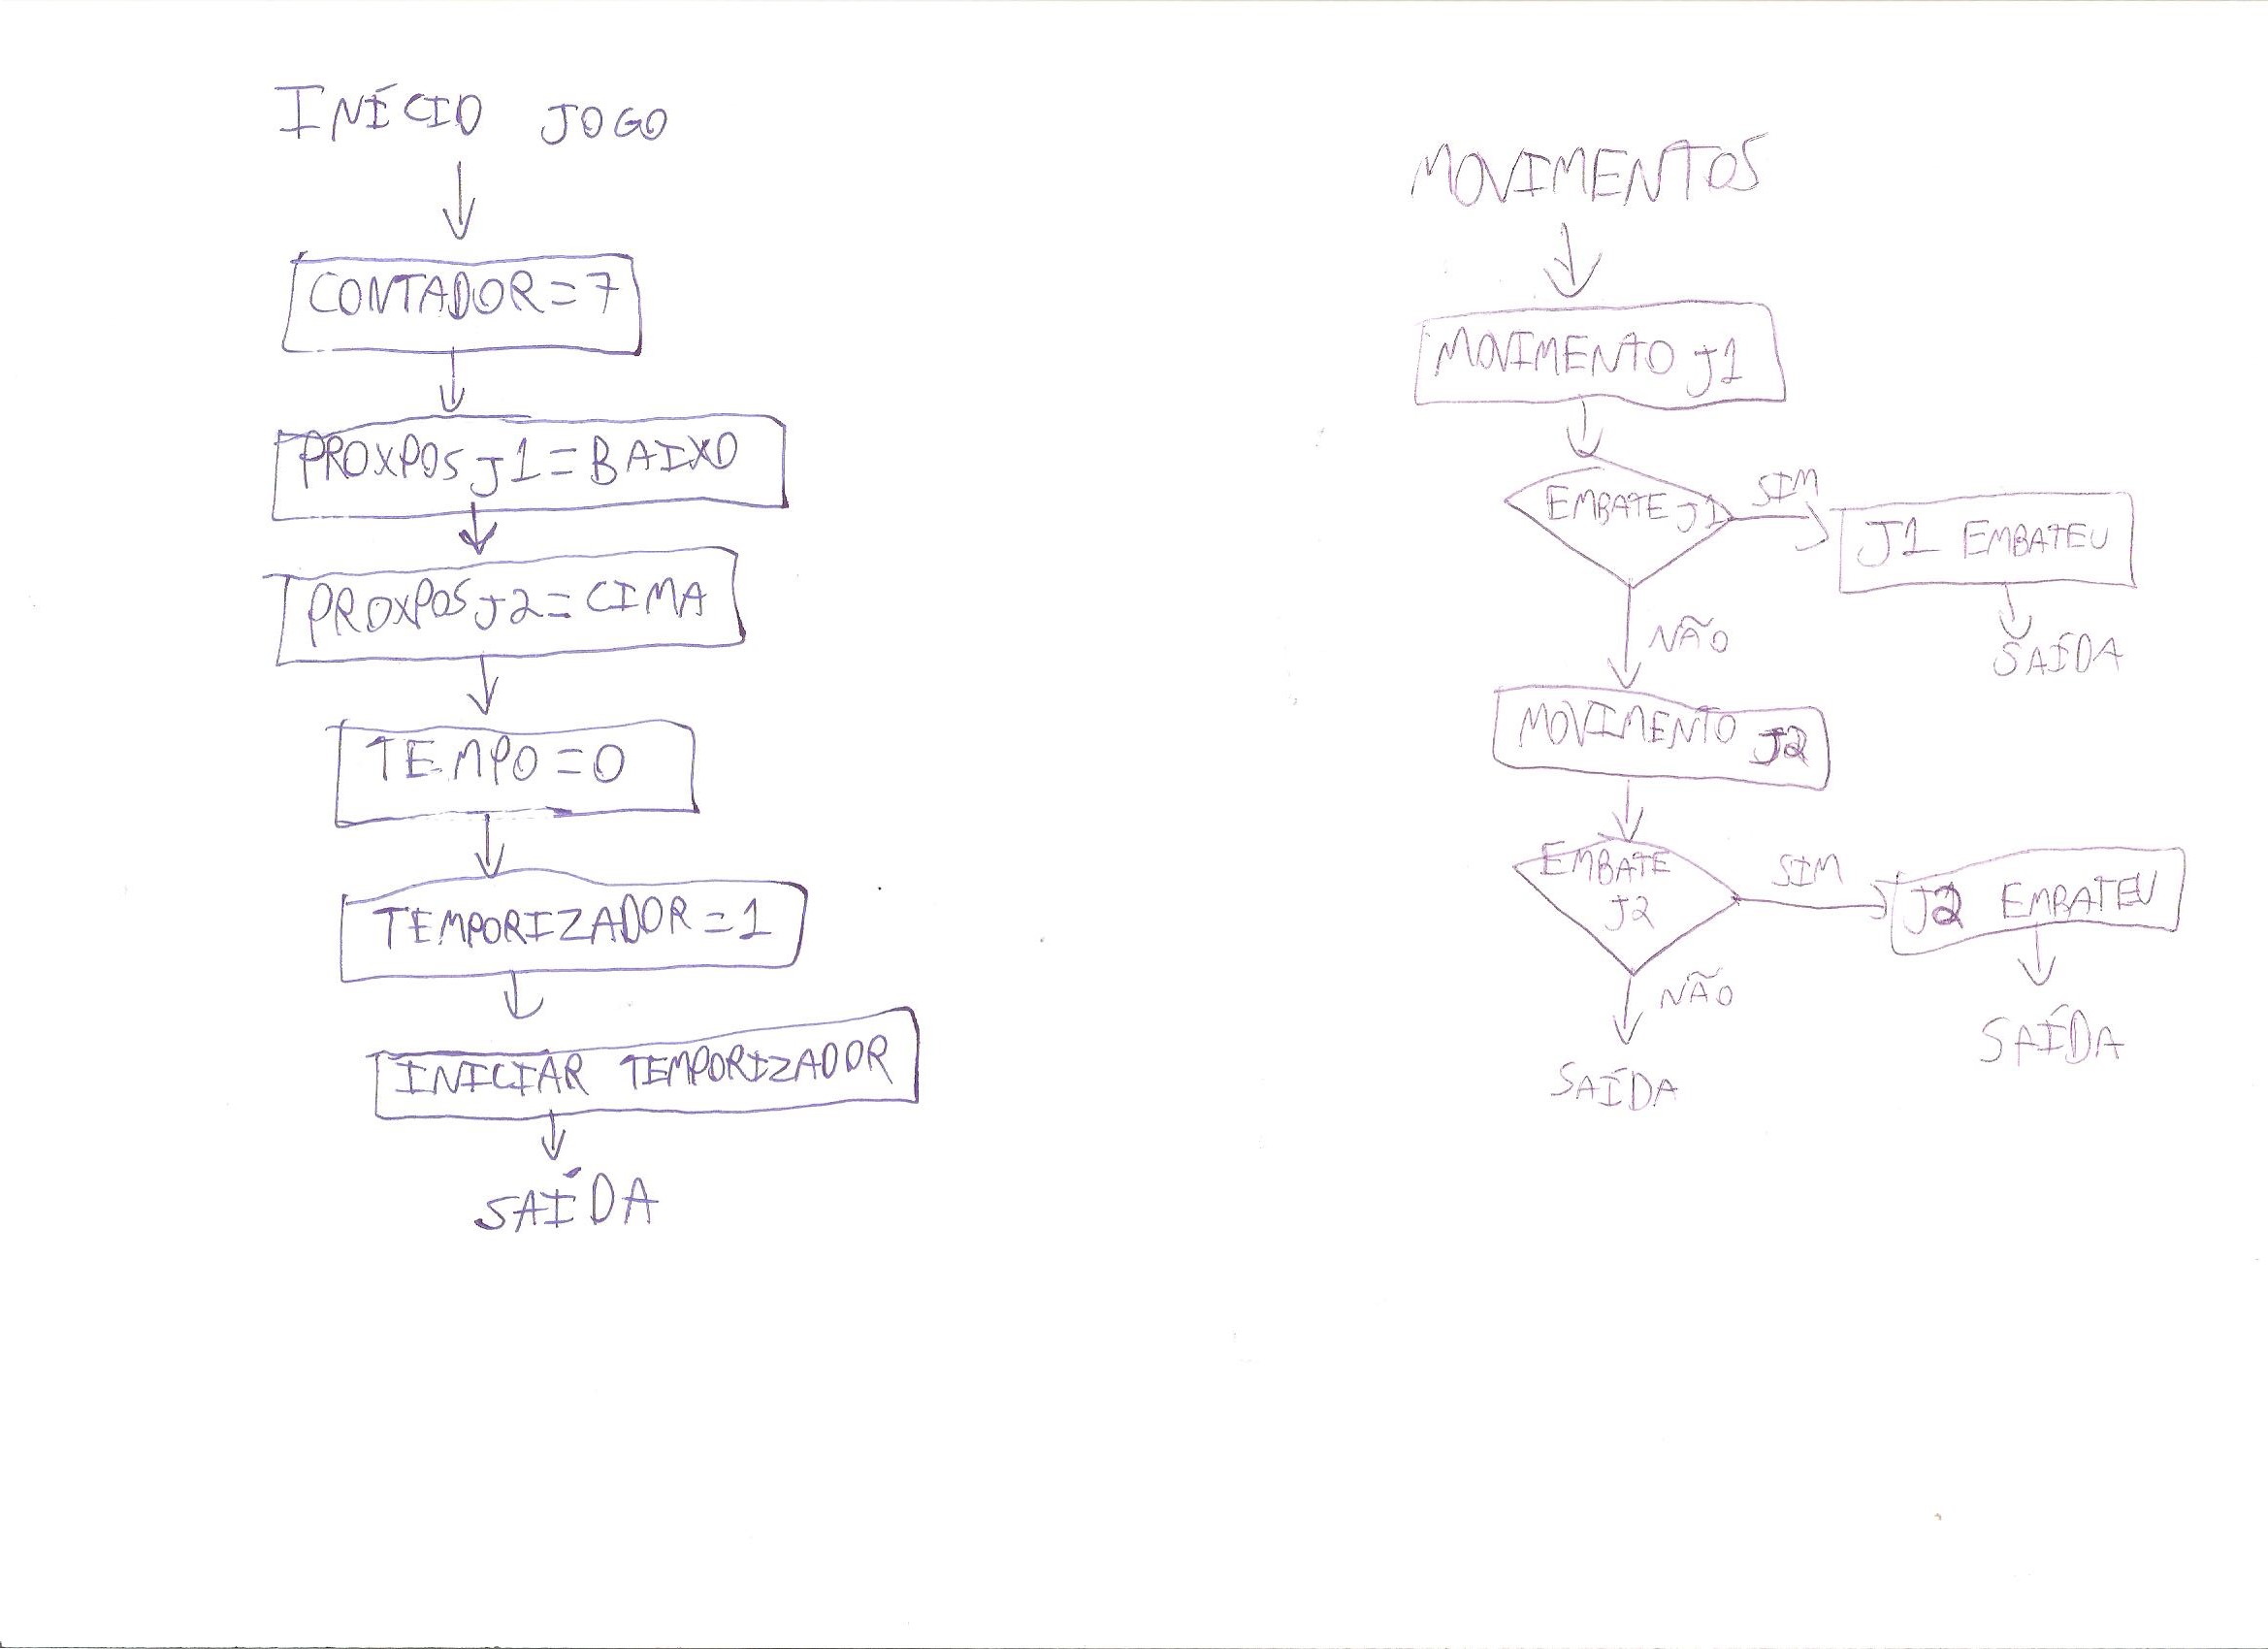 INÍCIO JOGO
CONTADOR=7
PROXPOSJ1=BAIXO
PROXPOSJ2=CIMA
TEMPO=0
TEMPORIZADOR=1
INICIAR TEMPORIZADOR
SAÍDA
MOVIMENTOS
MOVIMENTO J1
EMBATE J1
SIM
J1 EMBATEU
SAÍDA
NÃO
MOVIMENTO J2
EMBATE
J2
SIM
J2 EMBATEU
SAÍDA
NÃO
SAÍDA